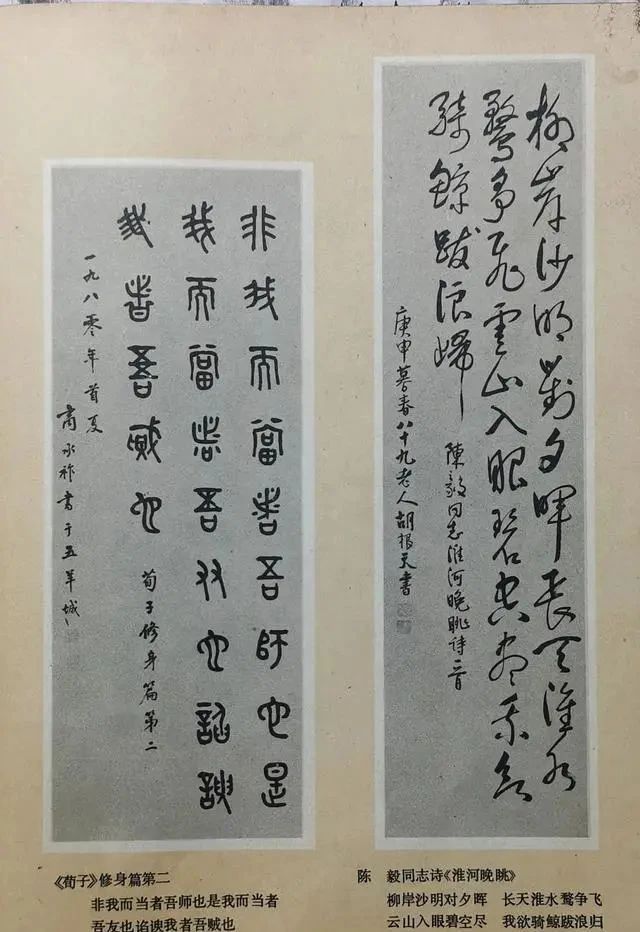 柳岸沙明對夕暉長天淮水
鶩爭飛雲山入眼碧空盡我欲
騎鯨跋浪歸
陳毅同志淮河晚眺詩一首
庚申暮春八十九老人胡根天書
非我而當者吾師也是
我而當者吾友也諂諛
我者吾賊也
荀子修身篇第二
一九八零年首夏
商承祚書于五羊城
《荀子》修身篇第二
非我而当者吾师也是我而当者
吾友也谄谀我者吾贼也
陈 毅同志诗《淮河晚眺》
柳岸沙明对夕晖 长天淮水鹜争飞
云山入眼碧空尽 我欲骑鲸跋浪归